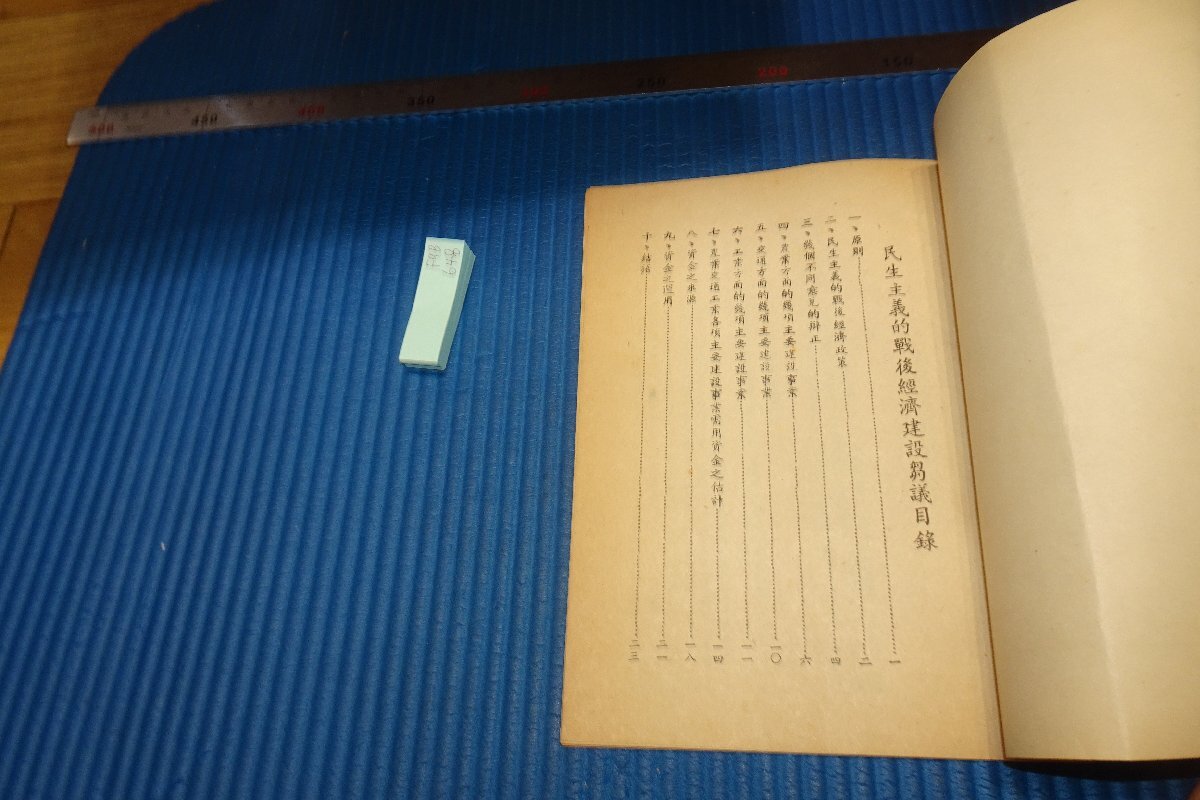 民生主義的戰後經濟建設芻議目錄
一、原則……一
二、民生主義的戰後經濟政策……二
三、幾個不同意見的辯正……四
四、農業方面的幾項主要建設事業……六
五、交通方面的幾項主要建設事業……一〇
六、工業方面的幾項主要建設事業……一一
七、農業交通工業各項主要建設事業需用資金之估計……一四
八、資金之來源……一八
九、資金之運用……二一
十、結論……二三
450 400 350 300 250 200 150